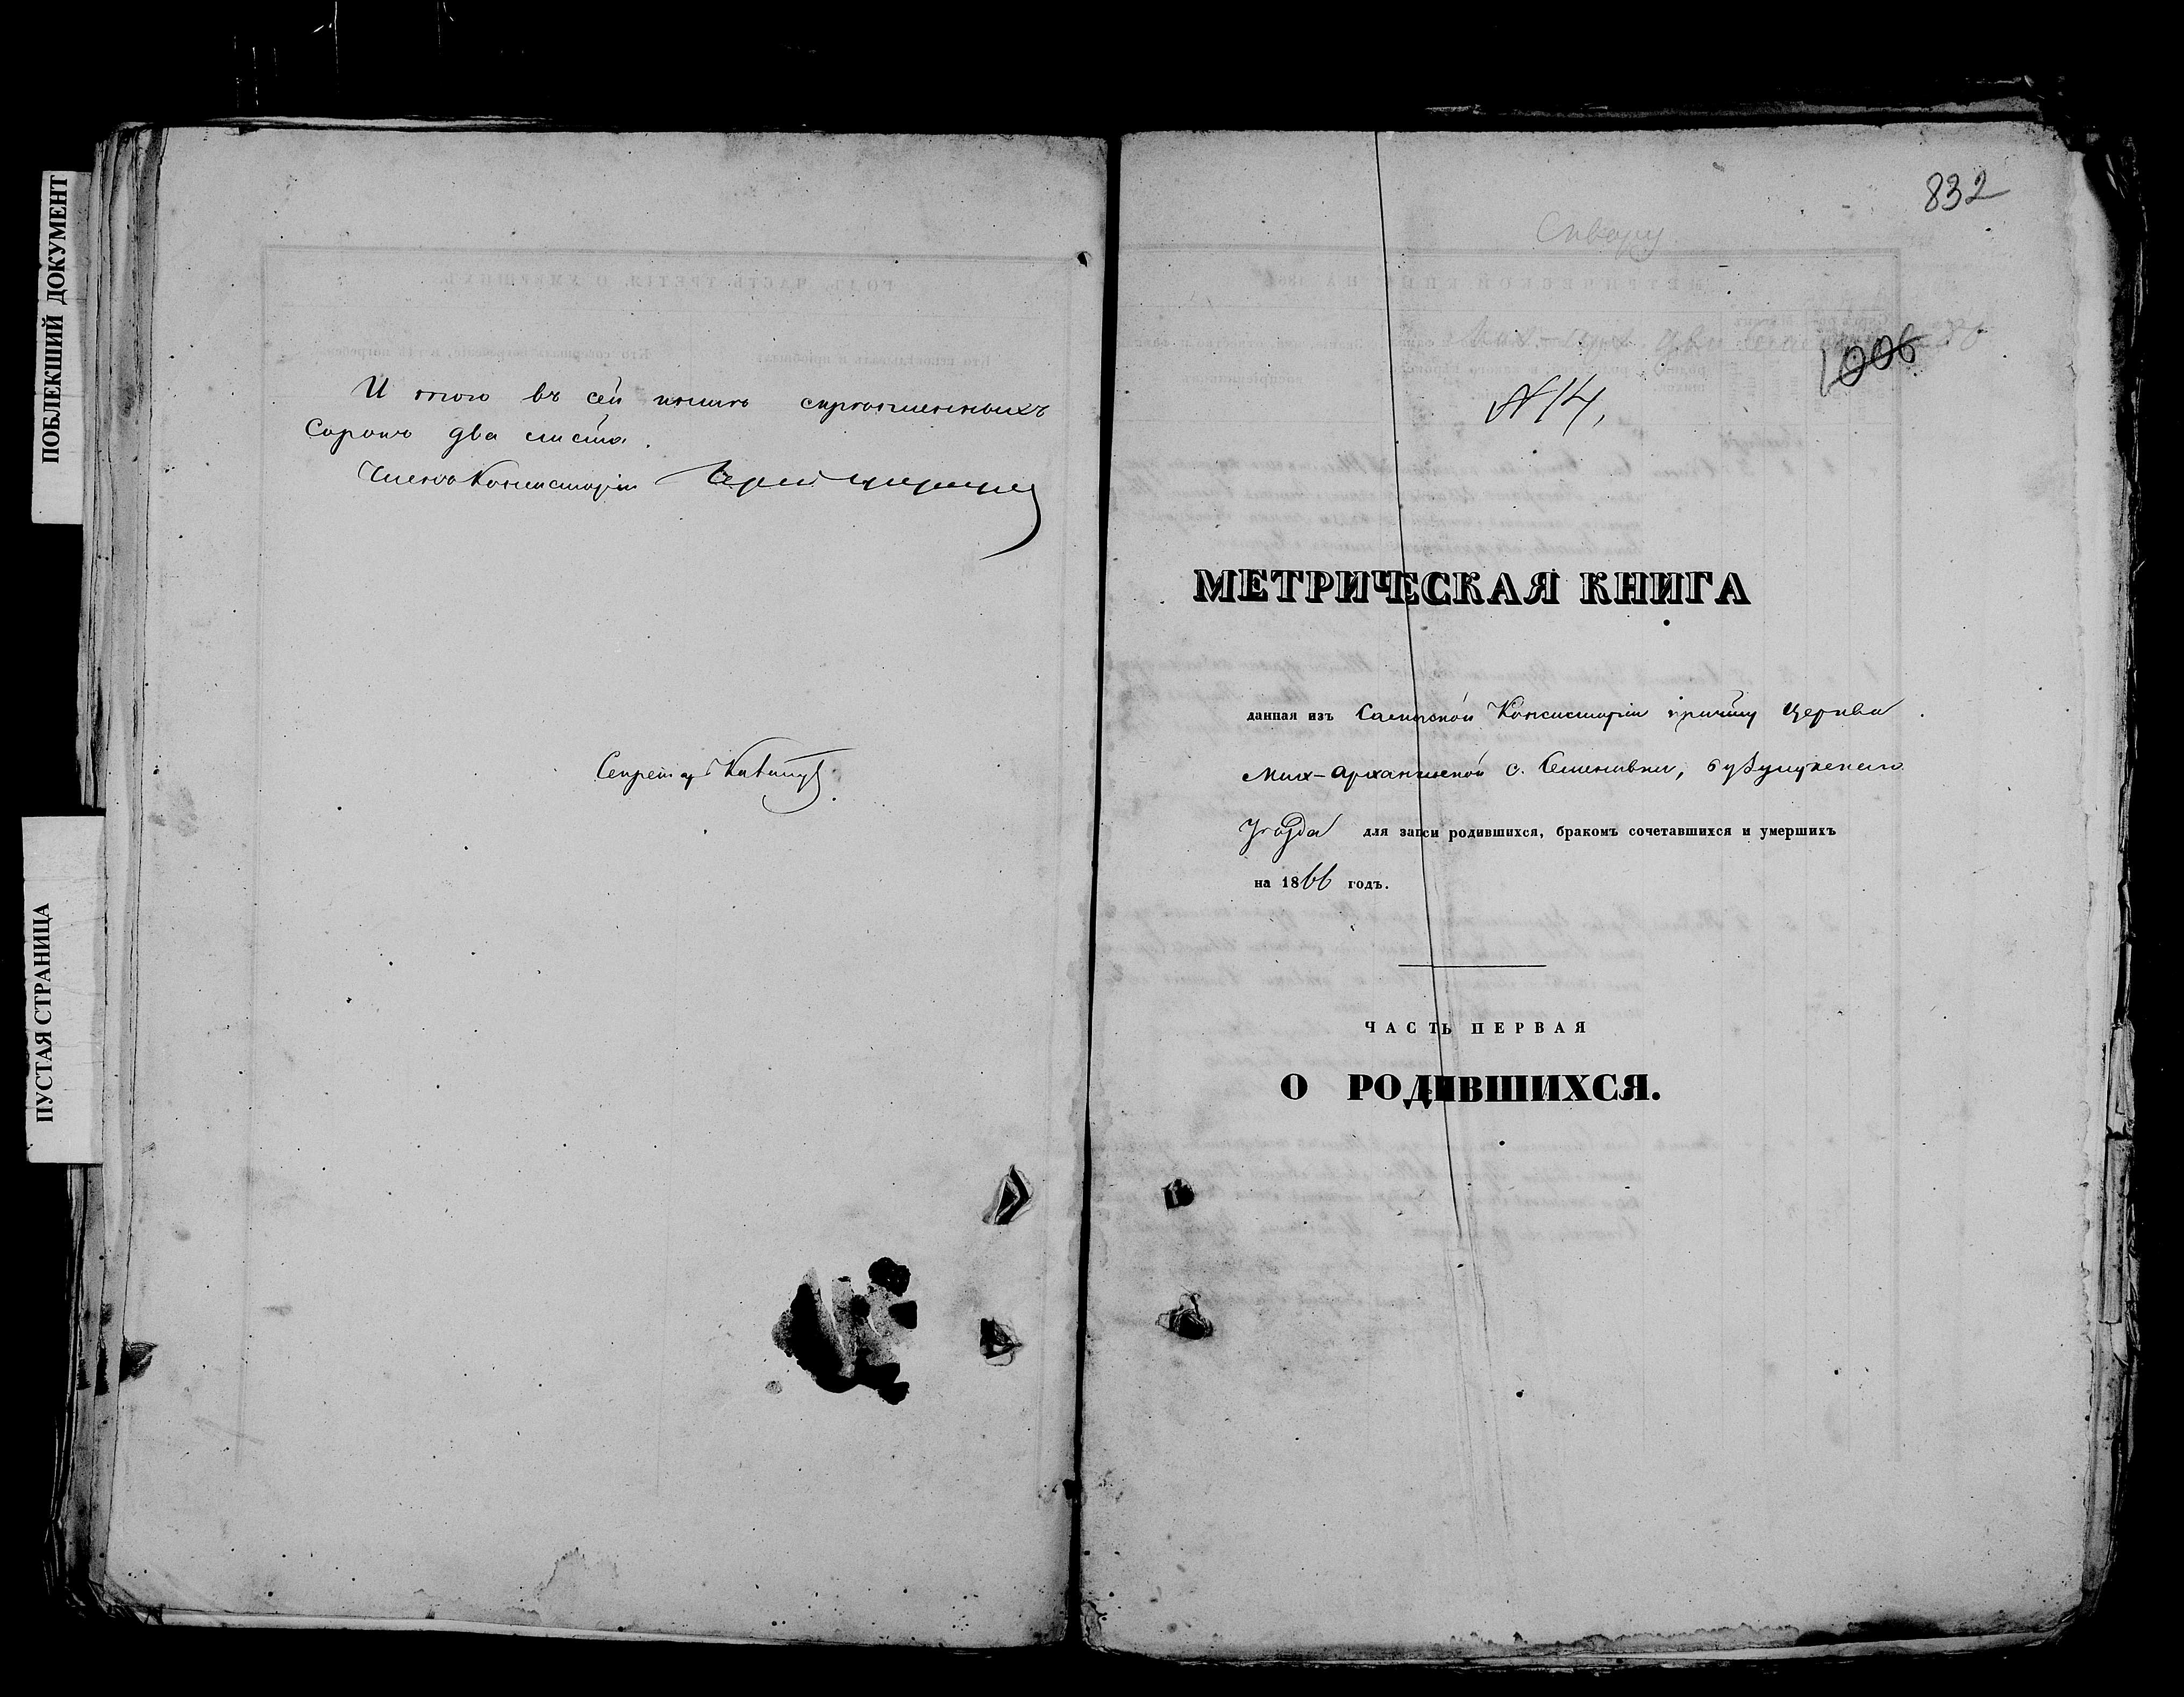 ПОБЛЕКШИЙ ДОКУМЕНТ
ПУСТАЯ СТРАНИЦА
И того въ сей книге скрепленныхъ
Сорокъ два листа.
Членъ Консисторіи
Секретарь
832
1006
№ 14,
МЕТРИЧЕСКАЯ КНИГА
данная изъ Самарской Консисторіи причту Церкви
Мих-Архангельской с. Семеновки, бузулукскаго
Уезда для запси родившихся, бракомъ сочетавшихся и умершихъ
на 1866 годъ.
ЧАСТЬ ПЕРВАЯ
О РОДИВШИХСЯ.